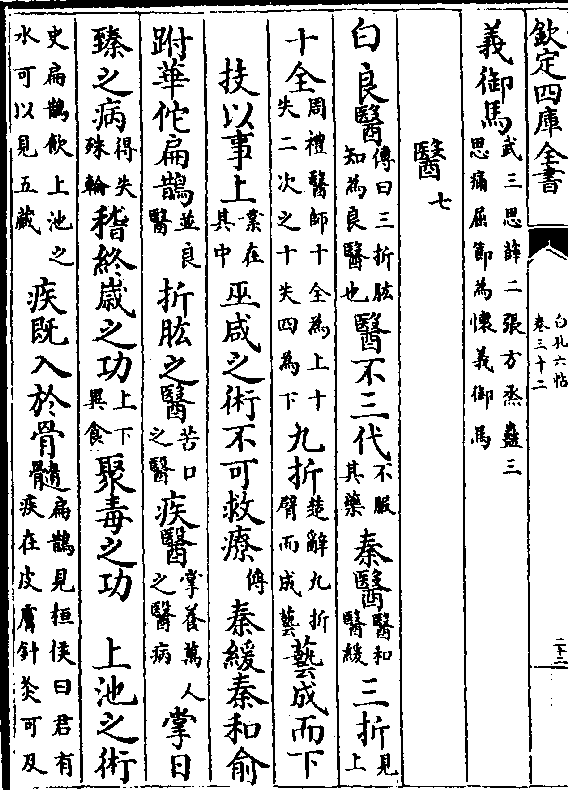 欽定四庫全書
白孔六帖
卷三十二
二十二
義御馬武三思諱二張方烝蠱三
思痛屈節為懷義御馬
醫七
白良醫傳曰三折肱
知為良醫也醫不三代不服
其藥秦醫醫和
醫緩三折見
上
十全周禮醫師十全為上十
失二次之十失四為下九折楚辭九折
臂而成藝藝成而下
技以事上業在
其中巫咸之術不可救療傳秦緩秦和俞
跗華佗扁鵲並良
醫折肱之醫苦口
之醫疾醫掌養萬人
之醫病掌日
臻之病得失
殊輪稽終歲之功上下
異食聚毒之功 上池之術
史扁鵲飲上池之
水可以見五藏疾既入於骨髓扁鵲見桓侯曰君有
疾在皮膚針灸可及